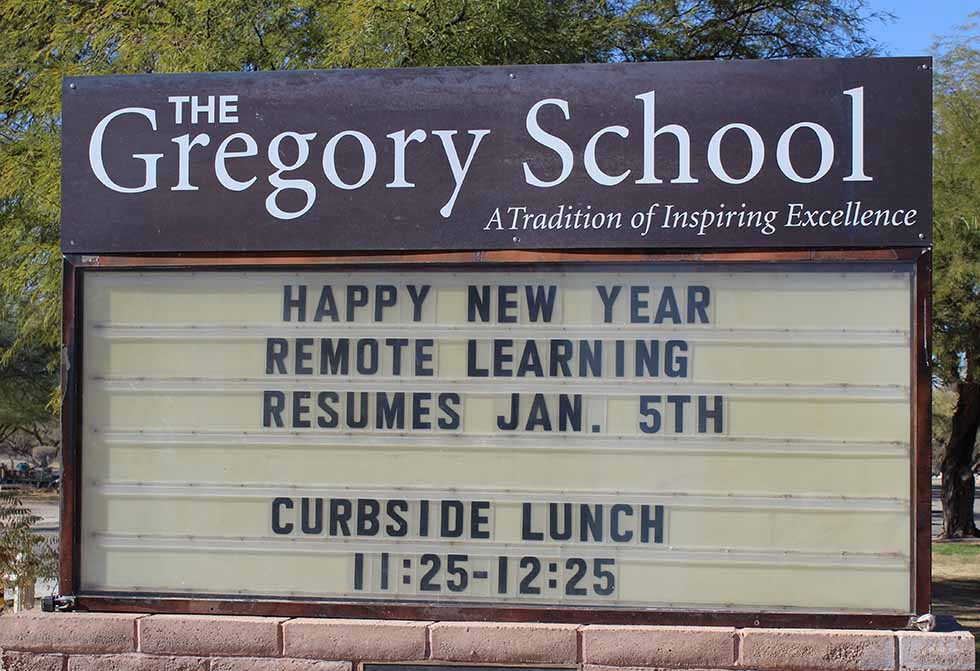 THE
Gregory School
A Tradition of Inspiring Excellence
HAPPY NEW YEAR
REMOTE LEARNING
RESUMES JAN. 5TH
CURBSIDE LUNCH
11:25-12:25